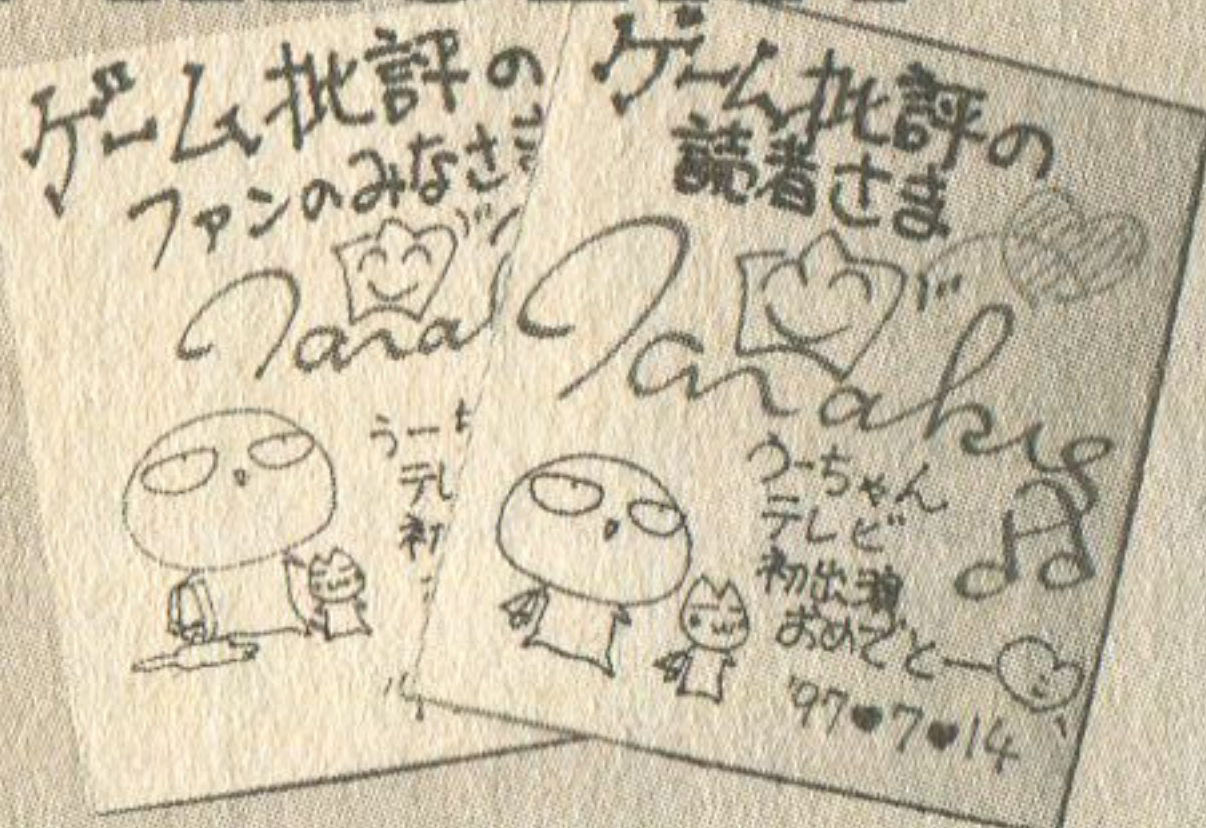 ゲーム批評の
ファンのみなさ
うーち
テレ
初
ゲーム批評の
読者さま
うーちゃん
テレビ
初出演
おめでとー
'97♥7♥14